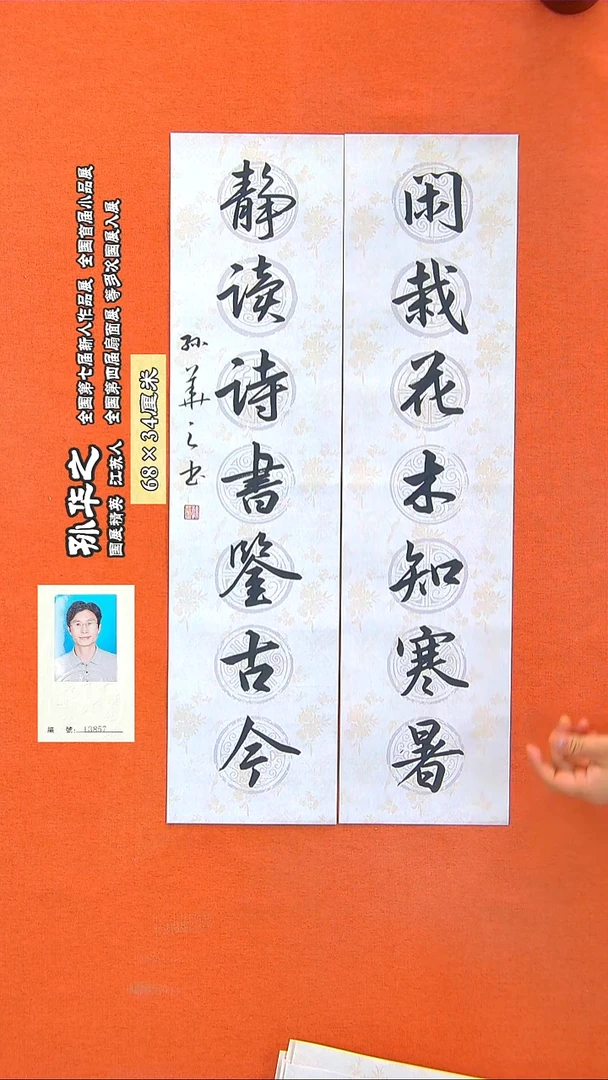 闲栽花木知寒暑
静读诗書鑒古今
孙華之书
孙华之
国展精英 江苏人
全国第七届新人作品展 全国首届小品展
全国第四届扇面展 等多次国展入展
68×34厘米
編 號: 13857